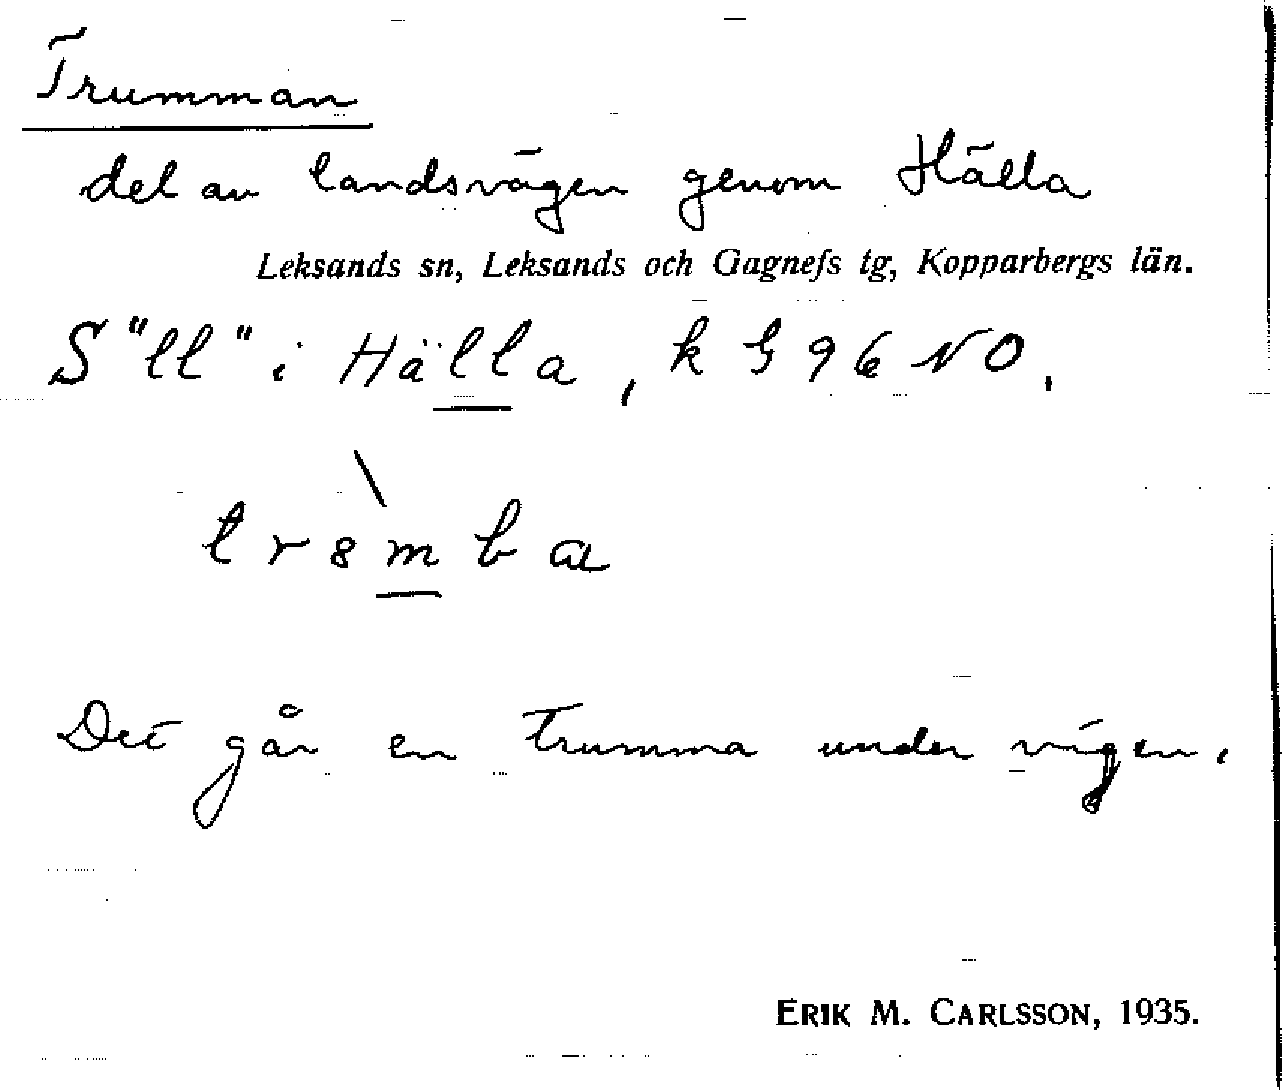 Trumman
del av landsvägen genom Hälla
Leksands sn, Leksands och Gagnefs tg, Kopparbergs län.
S "ll" i Hälla, k G 96 NO.
tr8mba
Det går en trumma under vägen.
ERIK M. CARLSSON, 1935.